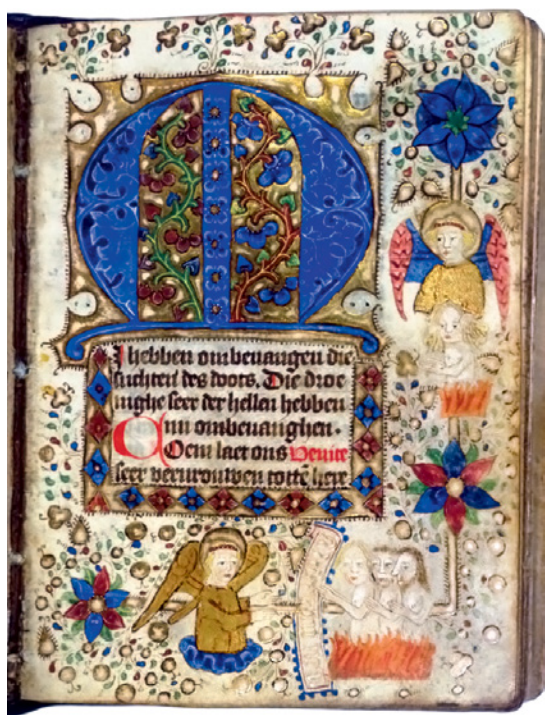 MI hebben ombeuangen die
suchten des doots. Die droe
nighe seer der hellen hebben
mi ombeuanghen.
COem laet ons venite
seer verurouwen tottē here